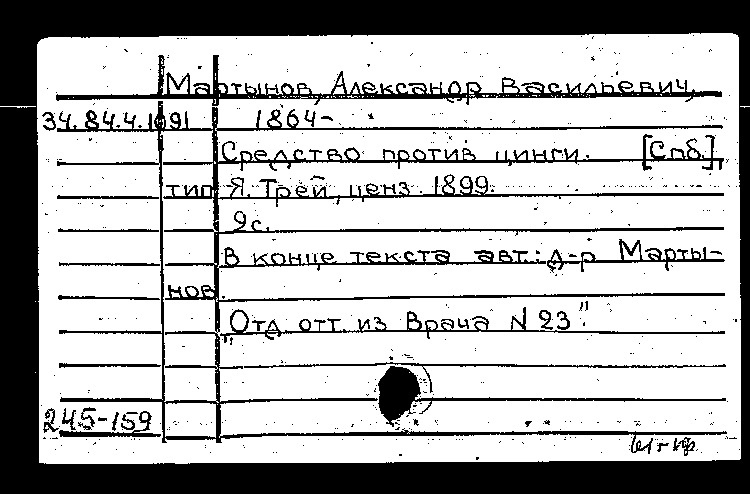 Мартынов, Александр Васильевич,
34.84.4.1091 1864-
Средство против цинги. [Спб.],
тип. Я. Трей, ценз. 1899.
9с.
В конце текста авт.: д-р Марты-
нов.
„Отд. отт. из Врача N 23".
245-159